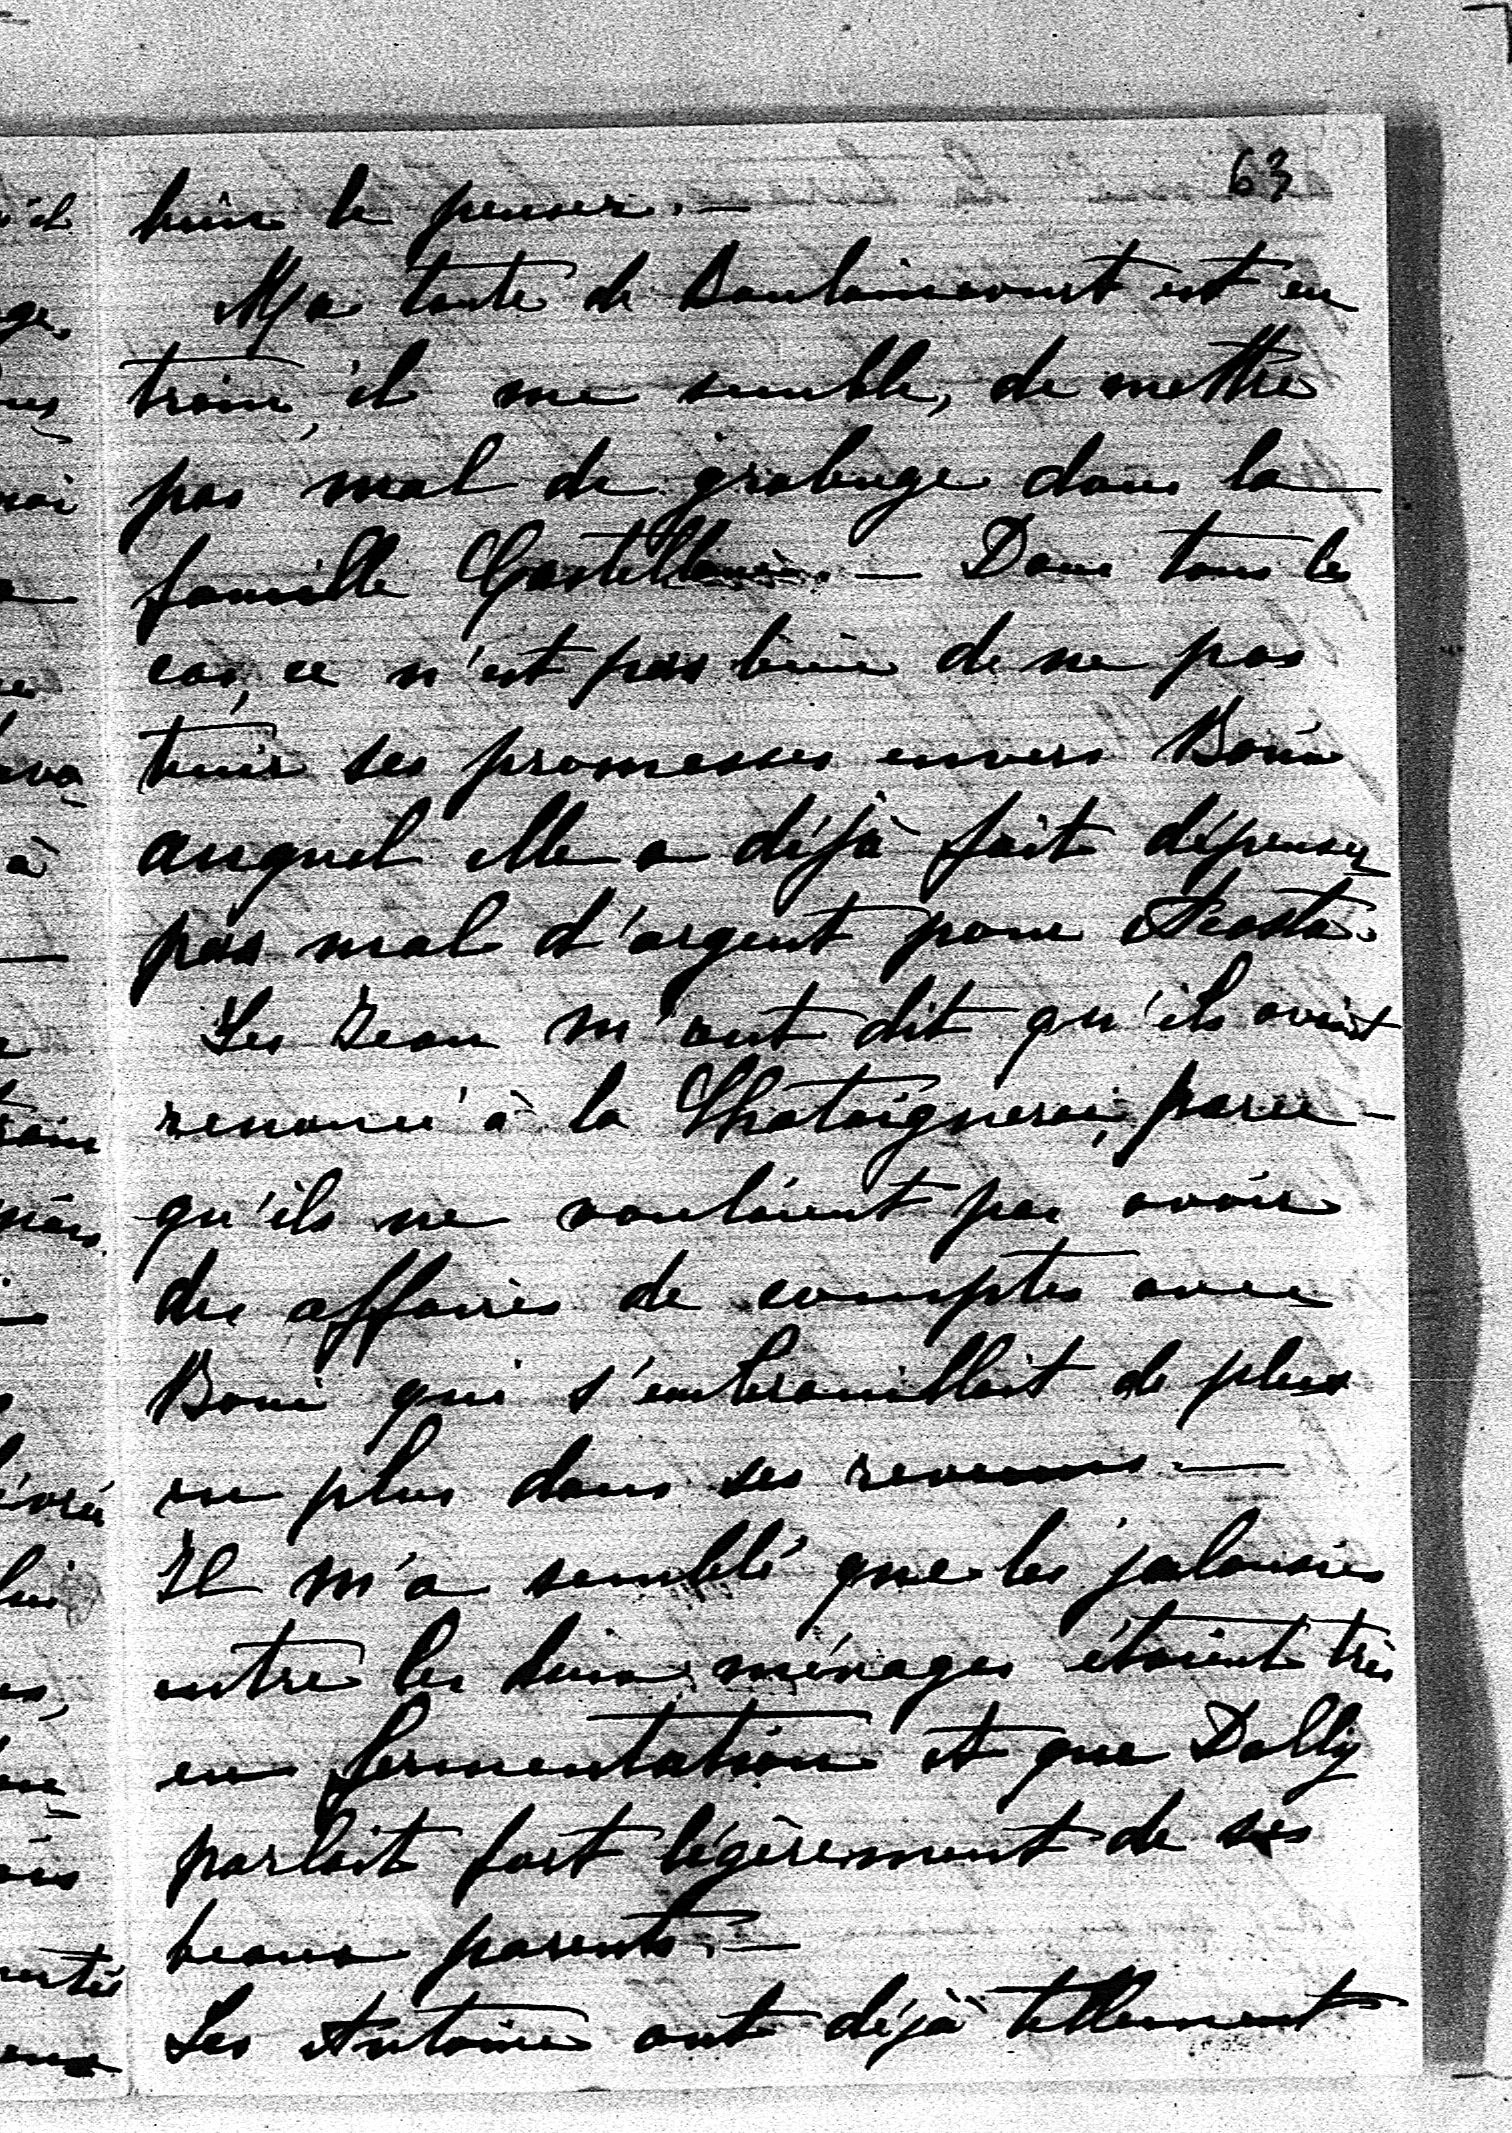 63
bien le penser. —
Ma tante de Doulaincourt est en
train, il me semble, de mettre
pas mal de grabuge dans la
famille Castellane. — Dans tous les
cas, ce n'est pas bien de ne pas
tenir ses promesses envers Boni
auquel elle a déjà fait dépenser
pas mal d'argent pour Acosta.
Les Jean m'ont dit qu'ils avaient
renoncé à la Chataigneraie, parce
qu'ils ne voulaient pas avoir
des affaires de comptes avec
Boni qui s'embrouillait de plus
en plus dans ses revenus. —
Il m'a semblé que les jalousies
entre les deux ménages étaient très
en fermentation et que Dolly
parlait fort légèrement de ses
beaux parents. —
Les Antoine ont déjà tellement